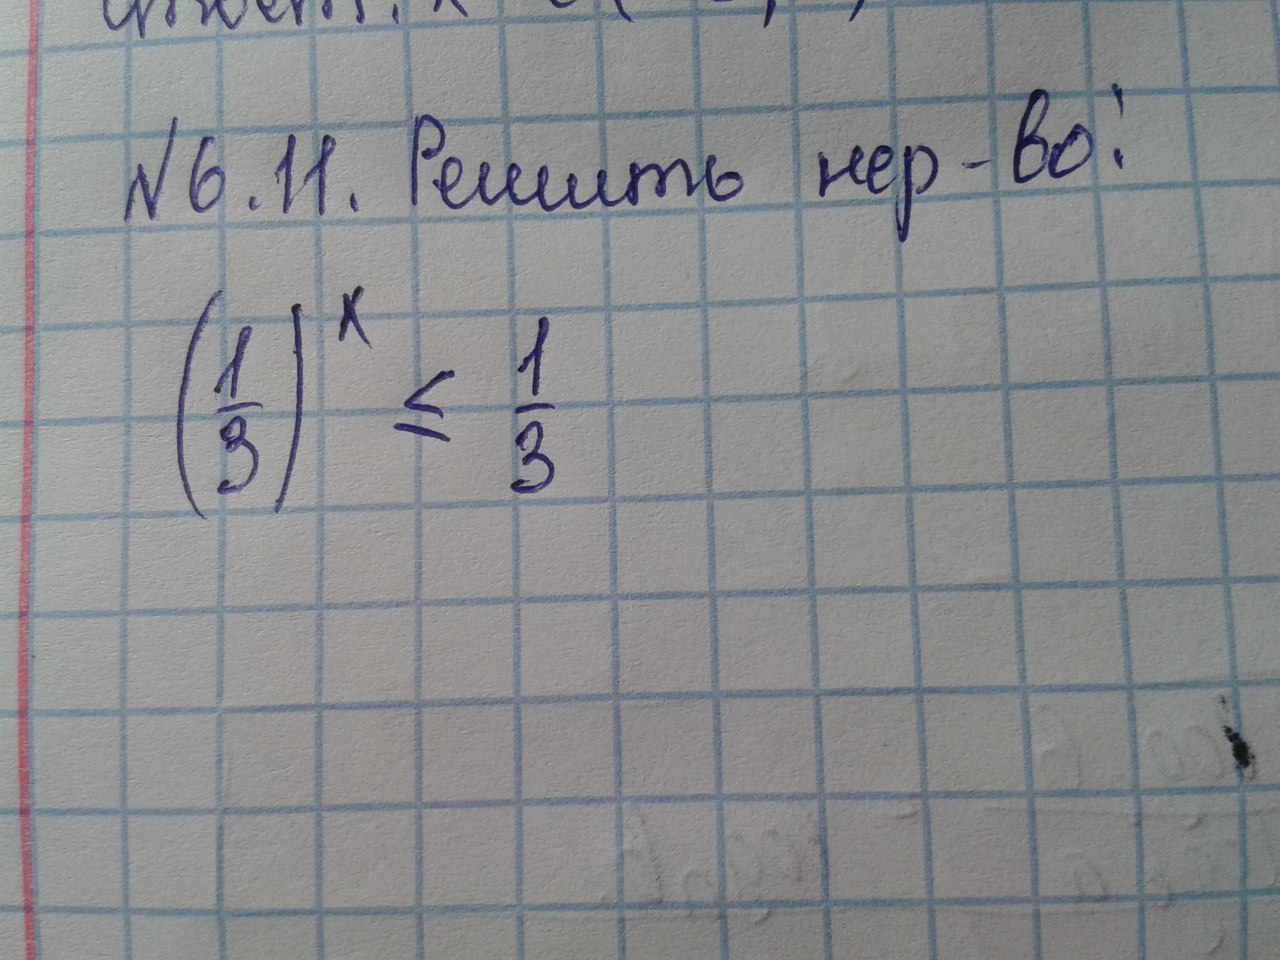 № 6.11. Решить нер-во:
(1/3)^x ≤ 1/3